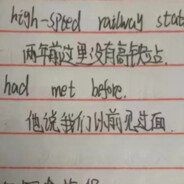 high-speed railway stat
两年前这里没有高铁站.
had met before.
他说我们以前见过面.